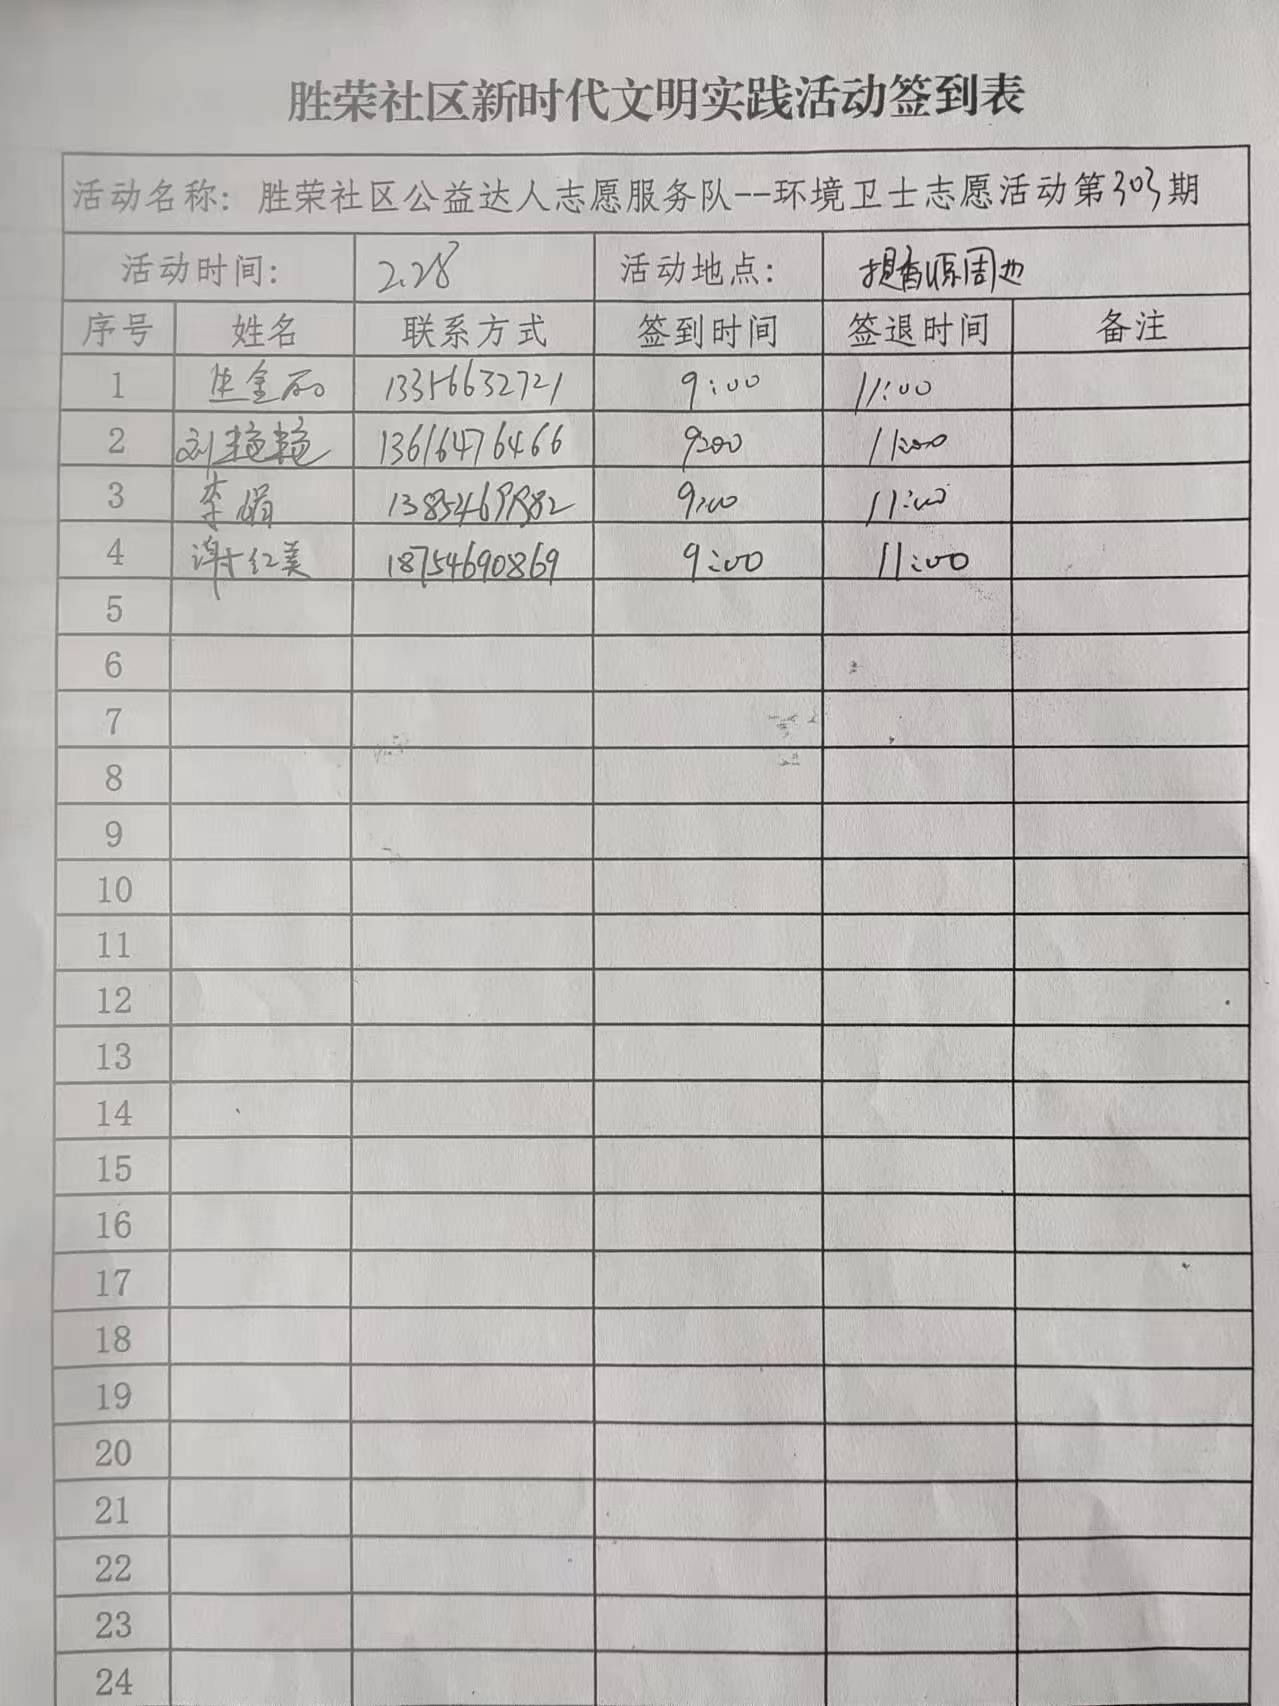 胜荣社区新时代文明实践活动签到表
活动名称：胜荣社区公益达人志愿服务队--环境卫士志愿活动第303期
活动时间： 2.28 活动地点： 提香源周边
序号 姓名 联系方式 签到时间 签退时间 备注
1 金 13356632721 9:00 11:00
2 刘艳艳 13616476466 9:00 11:00
3 李娟 9:00 11:00
4 谢红美 18754690869 9:00 11:00
5
6
7
8
9
10
11
12
13
14
15
16
17
18
19
20
21
22
23
24